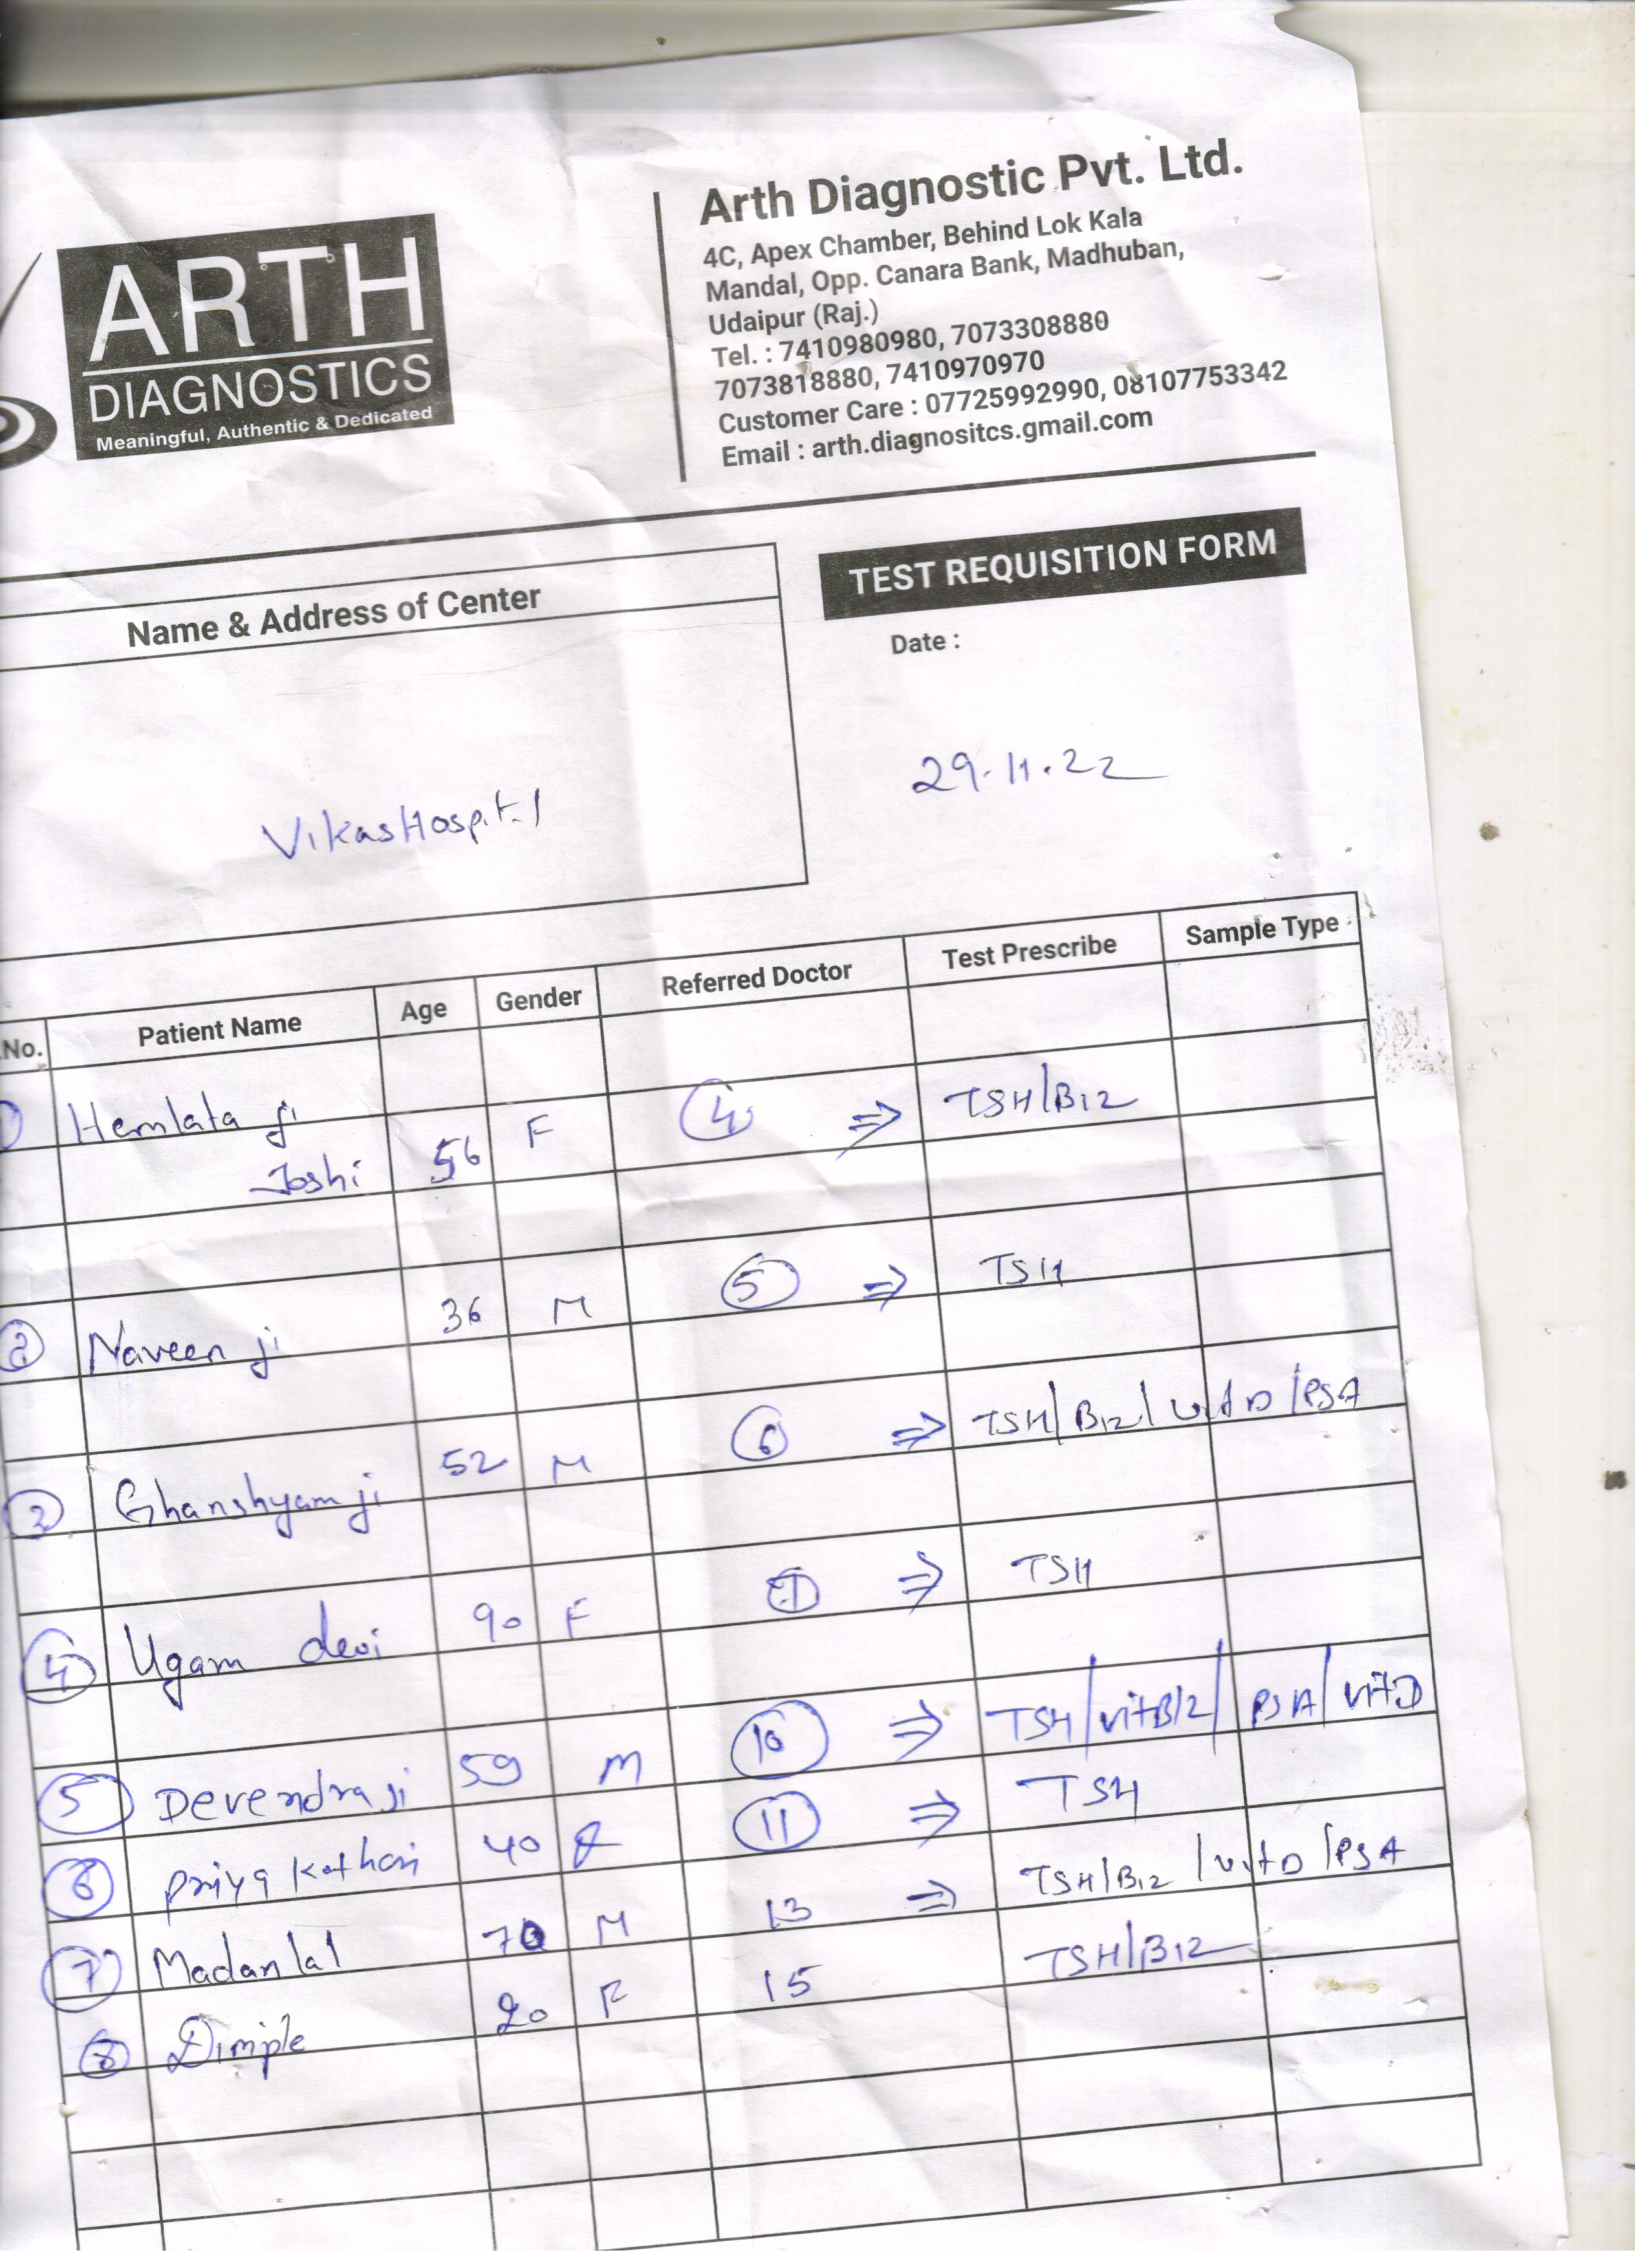 ARTH
DIAGNOSTICS
Meaningful, Authentic & Dedicated
Arth Diagnostic Pvt. Ltd.
4C, Apex Chamber, Behind Lok Kala
Mandal, Opp. Canara Bank, Madhuban,
Udaipur (Raj.)
Tel. : 7410980980, 7073308880
7073818880, 7410970970
Customer Care : 07725992990, 08107753342
Email : arth.diagnositcs.gmail.com
Name & Address of Center
Vikas Hospital
TEST REQUISITION FORM
Date :
29.11.22
.No. Patient Name Age Gender Referred Doctor Test Prescribe Sample Type
Hemlata ji 56 F 4 ⇒ TSH/B12
Joshi
2 Naveen ji 36 M 5 ⇒ TSH
3 Ghanshyam ji 52 M 6 ⇒ TSH/B12/Vit D/PSA
4 Ugam devi 90 F ⇒ TSH
5 Devendra ji 59 M 10 ⇒ TSH/VitB12/PSA/VitD
6 Priya Kothari 40 F 11 ⇒ TSH
7 Madanlal 70 M 13 ⇒ TSH/B12/Vit D/PSA
8 Dimple 20 F 15 TSH/B12